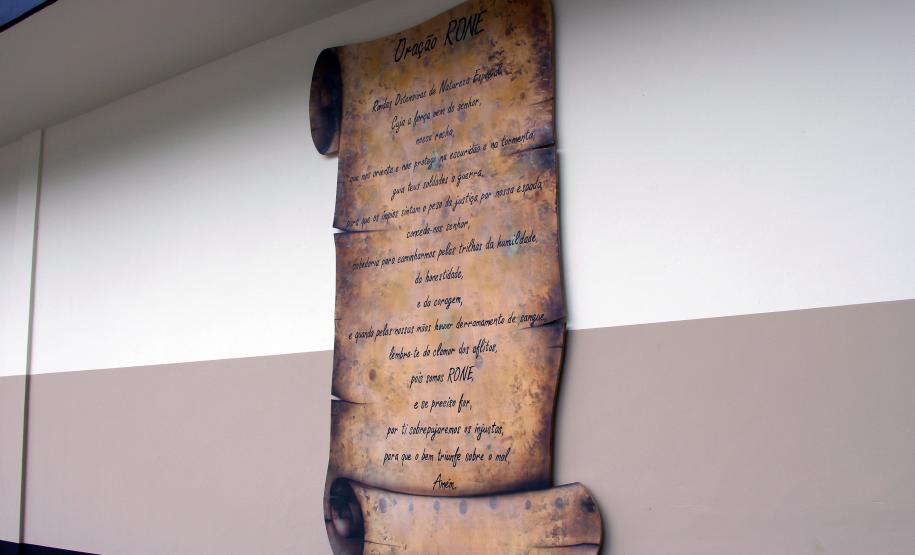 Oração RONE
Rondas Ostensivas de Natureza Especial
Cuja a força vem do senhor,
nossa rocha,
que nos orienta e nos protege na escuridão e na tormenta,
guia teus soldados a guerra,
para que os ímpios sintam o peso da justiça por nossa espada,
conceda-nos senhor,
sabedoria para caminharmos pelas trilhas da humildade,
da honestidade,
e da coragem,
e quando pelas nossas mãos houver derramamento de sangue,
lembra-te do clamor dos aflitos,
pois somos RONE,
e se preciso for,
por ti sobrepujaremos os injustos,
para que o bem triunfe sobre o mal,
Amém.